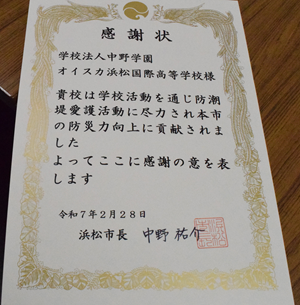 感謝状
学校法人中野学園
オイスカ浜松国際高等学校様
貴校は学校活動を通じ防潮
堤愛護活動に尽力され本市
の防災力向上に貢献されま
した
よってここに感謝の意を表
します
令和7年2月28日
浜松市長 中野祐介